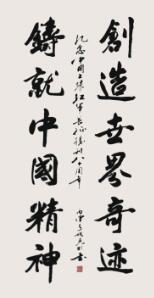 創造世界奇迹
鑄就中國精神
紀念中國工農紅軍長征勝利八十周年